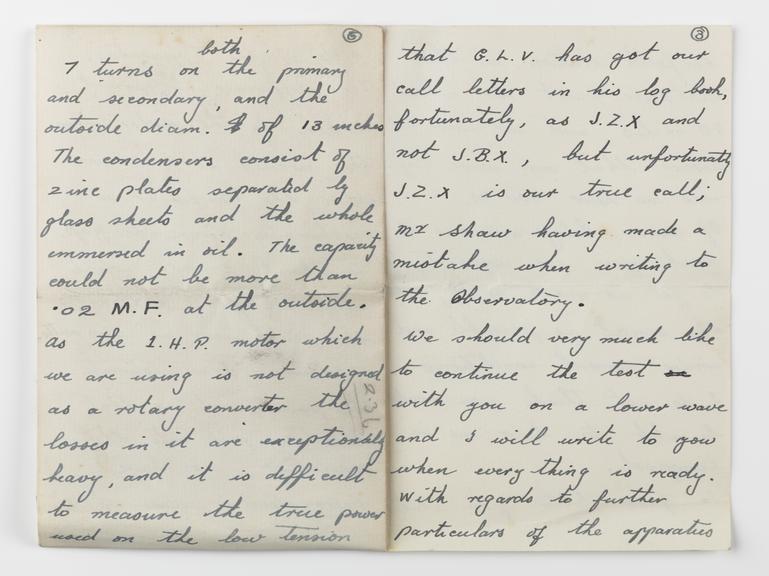 5
both
7 turns on the primary
and secondary, and the
outside diam. of 13 inches
The condensers consist of
zinc plates separated by
glass sheets and the whole
immersed in oil. The capacity
could not be more than
.02 M.F. at the outside.
As the 1.H.P. motor which
we are using is not designed
as a rotary converter the
losses in it are exceptionally
heavy, and it is difficult
to measure the true power
used on the low tension
3
that G.L.V. has got our
call letters in his log book,
fortunately, as J.Z.X and
not J.B.X., but unfortunatly
J.Z.X is our true call;
Mr Shaw having made a
mistake when writing to
the Observatory.
We should very much like
to continue the test
with you on a lower wave
and I will write to you
when every thing is ready.
With regards to further
particulars of the apparatus